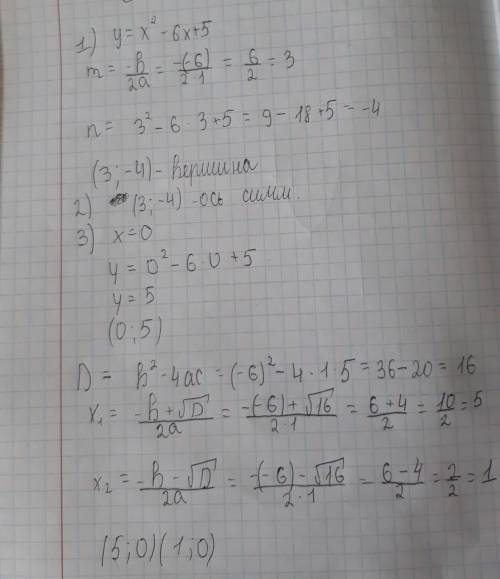 1) y = x² - 6x + 5
m = -b/2a = -(-6)/2·1 = 6/2 = 3
n = 3² - 6 · 3 + 5 = 9 - 18 + 5 = -4
(3; -4) - вершина
2) (3; -4) - ось симм.
3) x = 0
y = 0² - 6 0 + 5
y = 5
(0; 5)
D = b² - 4ac = (-6)² - 4 · 1 · 5 = 36 - 20 = 16
x₁ = -b + √D/2a = -(-6) + √16/2·1 = 6 + 4/2 = 10/2 = 5
x₂ = -b - √D/2a = -(-6) - √16/2·1 = 6 - 4/2 = 2/2 = 1
(5; 0) (1; 0)